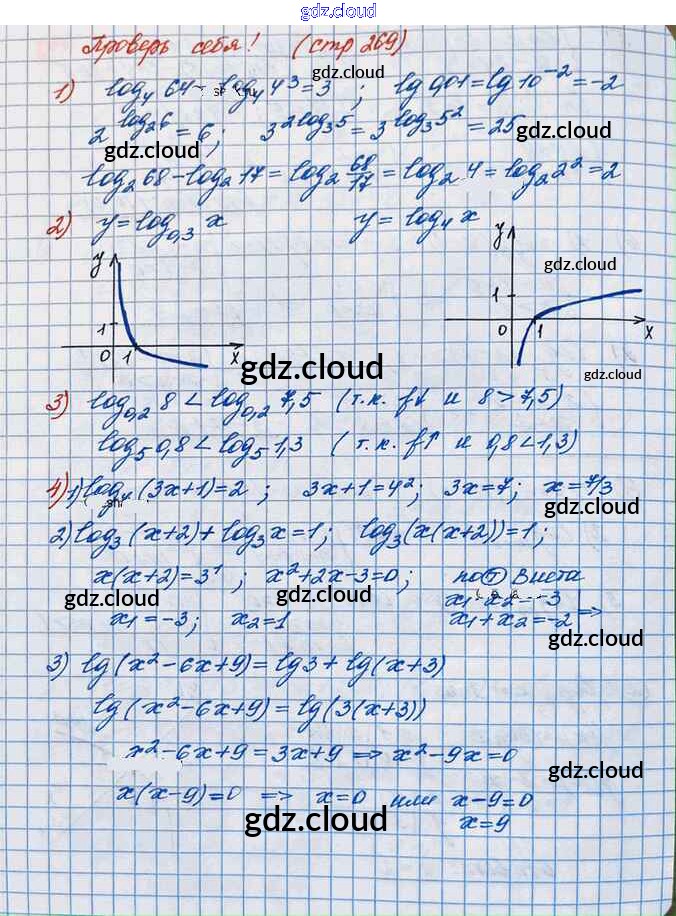 gdz.cloud
Проверь себя! (стр 269)
gdz.cloud
1) log₄ 64 = log₄ 4³ = 3 ; lg 0,01 = lg 10⁻² = -2
2^(log₂6) = 6 ; 3^(2log₃5) = 3^(log₃5²) = 25
gdz.cloud gdz.cloud
log₂ 68 - log₂ 17 = log₂ 68/17 = log₂ 4 = log₂ 2² = 2
gdz.cloud
2) y = log₀,₃ x y = log₄ x
y y
gdz.cloud
1 1
0 1 x 0 1 x
gdz.cloud
3) log₀,₂ 8 < log₀,₂ 7,5 (т.к. f↓ и 8 > 7,5)
gdz.cloud
log₅ 0,8 < log₅ 1,3 (т.к. f↑ и 0,8 < 1,3)
4) 1) log₄ (3x+1) = 2 ; 3x+1 = 4² ; 3x = 7 ; x = 7/3
gdz.cloud
2) log₃ (x+2) + log₃ x = 1 ; log₃ (x(x+2)) = 1 ;
x(x+2) = 3¹ ; x² + 2x - 3 = 0 ; по Т Виета
gdz.cloud gdz.cloud
x₁ · x₂ = -3
x₁ + x₂ = -2 =>
x₁ = -3 ; x₂ = 1
gdz.cloud
3) lg (x² - 6x + 9) = lg 3 + lg (x+3)
lg (x² - 6x + 9) = lg (3(x+3))
x² - 6x + 9 = 3x + 9 => x² - 9x = 0
gdz.cloud
x(x-9) = 0 => x = 0 или x - 9 = 0
gdz.cloud
x = 9